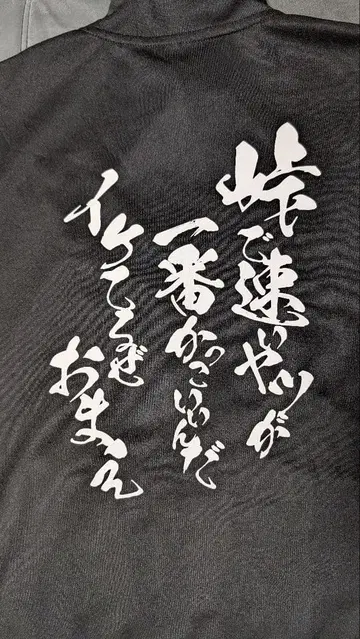 峠で速いヤツが
一番かっこいいんだ
イケてるぜ
おまえ